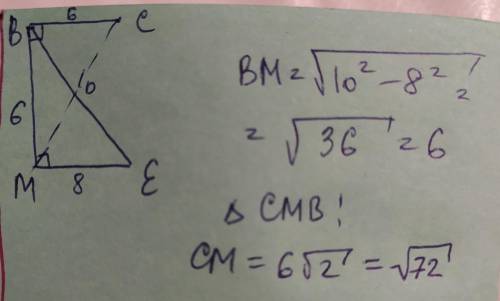 6
B C
10
6
M 8 E
BM = √10² - 8² =
= √36 = 6
Δ CMB!
CM = 6√2 = √72